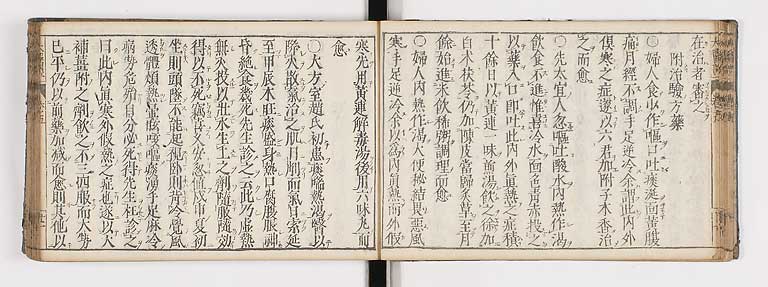 在治者審之
附治驗方藥
〇婦人食少作嘔口吐痰涎面黃腹
痛月經不調手足逆冷余謂此內外
俱寒之症遂以六君加附子木香治
之而愈
〇先太宜人忽嘔吐酸水內熱作渴
飲食不進惟喜冷水面色青赤投之
以藥入口即吐此內外真熱之症積
十餘日以黃連一味煎湯飲之徐加
白朮茯苓仍加陳皮當歸炙草至月
餘始進米飲稀粥調理而愈
〇婦人內熱作渴大便秘結畏惡風
寒手足逆冷余以為內真熱而外假
寒先用黃連解毒湯後用六味丸而
愈
〇大方室趙氏初患痰喘熱渴醫以
降火散氣治之肌日削而氣日索延
至甲辰木旺痰盛身熱口腐腹脹神
昏絕食幾死先生診之云此乃虛熱
無火投以壯水生土之劑隨服隨效
得以不死忽值戊申夏初
坐則頭墜不能起視臥則背冷覺風
透體煩熱喘嗽嘔痰湧手足麻冷
病勢危殆自分必死得先生在診之
曰此內真寒外假熱之症也遂以大
補薑附之劑飲之不三四服而大勢
已平仍以前藥加減而愈則其他以